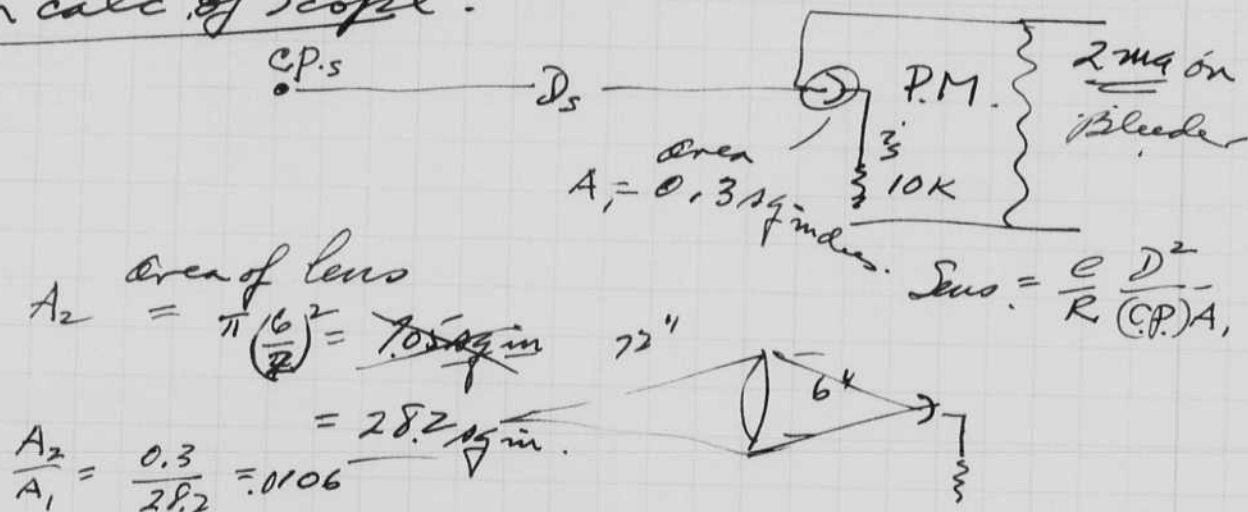 calc. of scope.
C.P.s
Ds
P.M.
2 ma on
Bleeder
area
A₁ = 0.3 sq inches.
is
10K
Sens. = e/R D²/(C.P.)A₁
area of lens
A₂ = π(6/2)² = 7.05 sq in
72"
6"
= 28.2 sq in.
A₂/A₁ = 0.3/28.2 = .0106